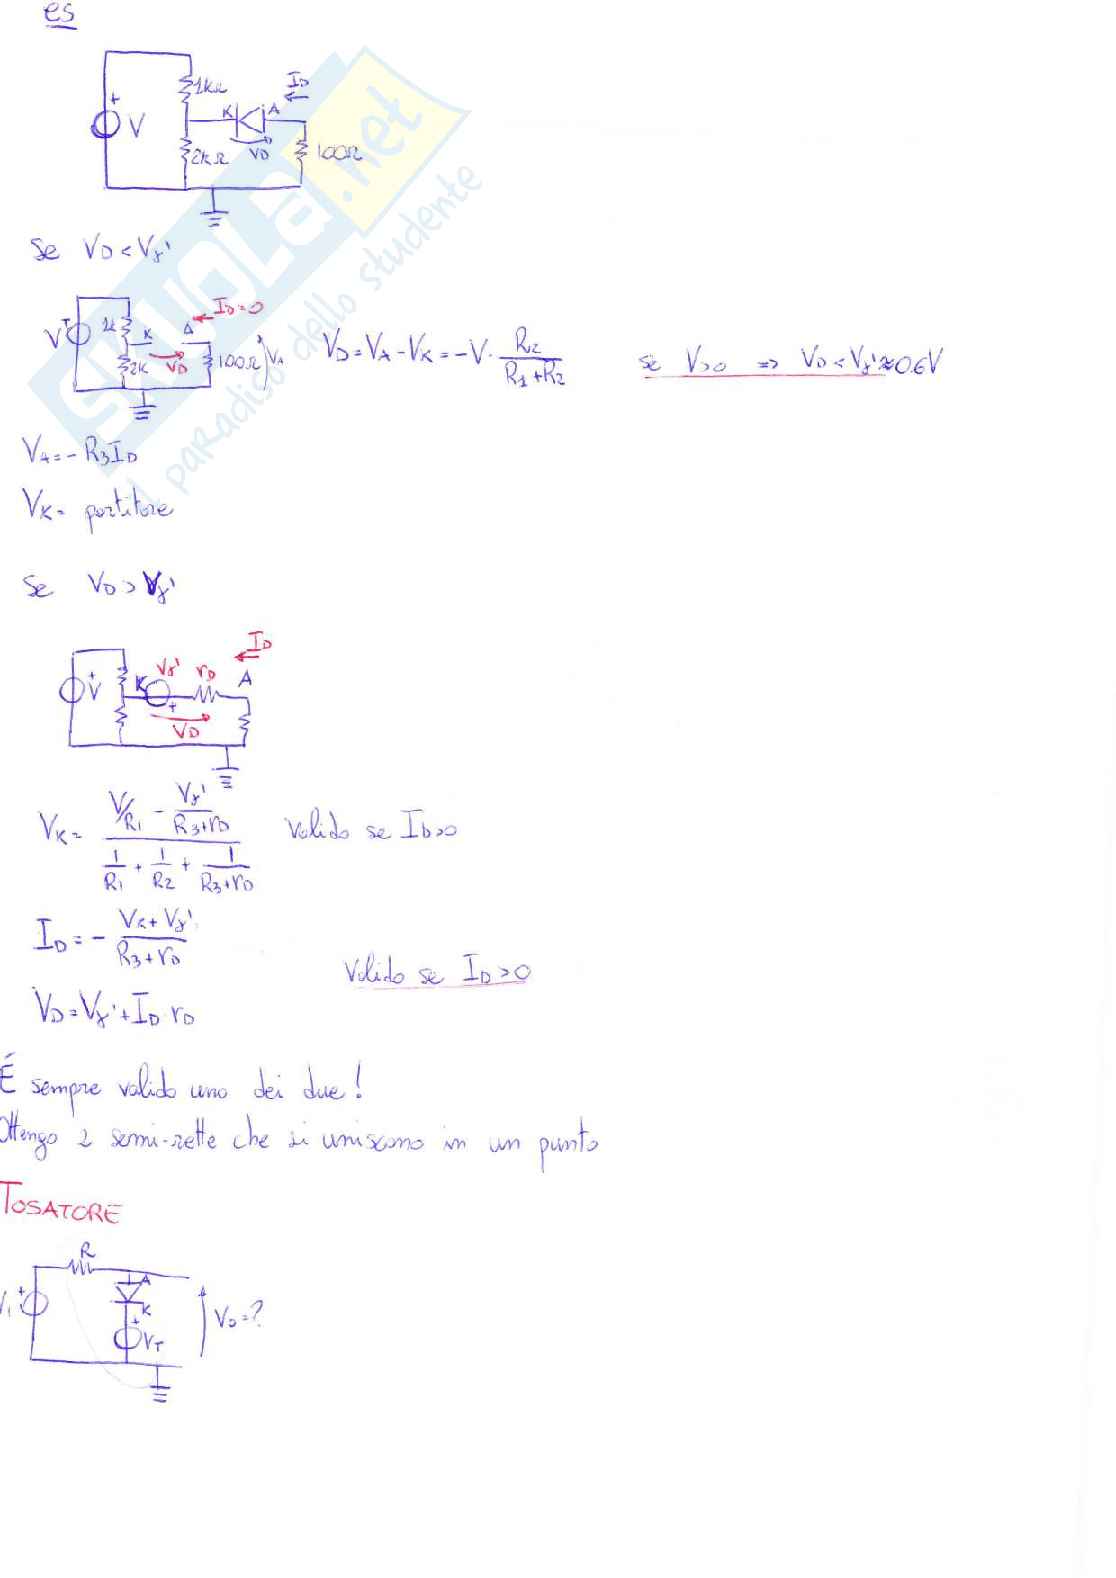 es
1kΩ
I_D
K A
V
+
2kΩ
V_D
100Ω
Se V_D < Vγ'
I_D=0
V + 1k K A
2K V_D 100Ω V_A
V_D = V_A - V_K = -V · R2/(R1+R2)
se V>0 ⇒ V_D < Vγ' ≈ 0.6V
V_A = -R3 I_D
V_K = partitore
Se V_D > Vγ'
I_D
Vγ' r_D
+ V K A
+
V_D
V_K = (V/R1 - Vγ'/(R3+r_D)) / (1/R1 + 1/R2 + 1/(R3+r_D))
Valido se I_D>0
I_D = - (V_K + Vγ')/(R3+r_D)
Valido se I_D>0
V_D = Vγ' + I_D · r_D
É sempre valido uno dei due!
Ottengo 2 semi-rette che si uniscono in un punto
TOSATORE
R
A
K
Vi +
+
V_T
Vo=?
SKUOLA.net
il paradiso dello studente